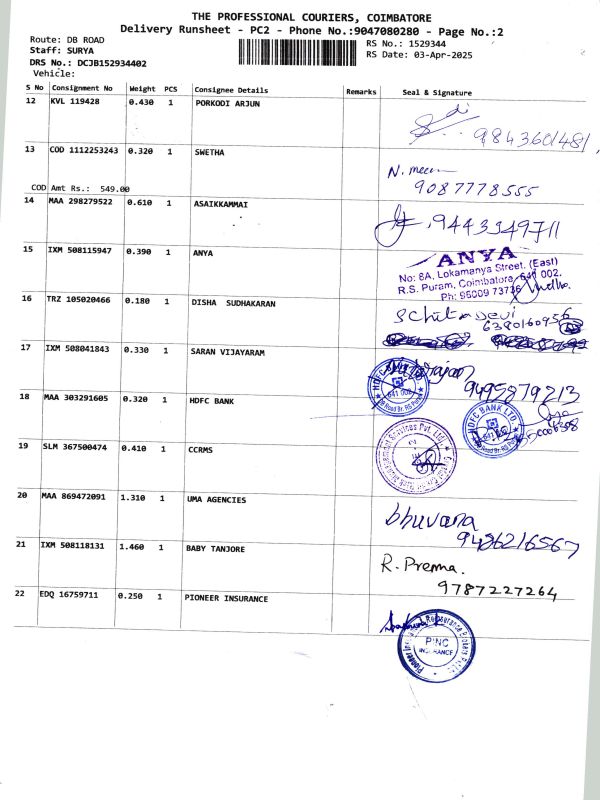 THE PROFESSIONAL COURIERS, COIMBATORE
Delivery Runsheet - PC2 - Phone No.:9047080280 - Page No.:2
Route: DB ROAD
RS No.: 1529344
Staff: SURYA
RS Date: 03-Apr-2025
DRS No.: DCJB152934402
Vehicle:
S No Consignment No Weight PCS Consignee Details Remarks Seal & Signature
12 KVL 119428 0.430 1 PORKODI ARJUN
9843601481
13 COD 1112253243 0.320 1 SWETHA
N. meena
9087778555
COD Amt Rs.: 549.00
14 MAA 298279522 0.610 1 ASAIKKAMMAI
9443349711
15 IXM 508115947 0.390 1 ANYA
ANYA
No: 8A, Lokamanya Street, (East)
R.S. Puram, Coimbatore- 641 002.
Ph: 96009 73736
16 TRZ 105020466 0.180 1 DISHA SUDHAKARAN
6380160956
17 IXM 508041843 0.330 1 SARAN VIJAYARAM
9495879213
18 MAA 303291605 0.320 1 HDFC BANK
HDFC BANK LTD
19 SLM 367500474 0.410 1 CCRMS
20 MAA 869472091 1.310 1 UMA AGENCIES
bhuvana
9486216567
21 IXM 508118131 1.460 1 BABY TANJORE
R. Prema.
9787227264
22 EDQ 16759711 0.250 1 PIONEER INSURANCE
PINC
INSURANCE